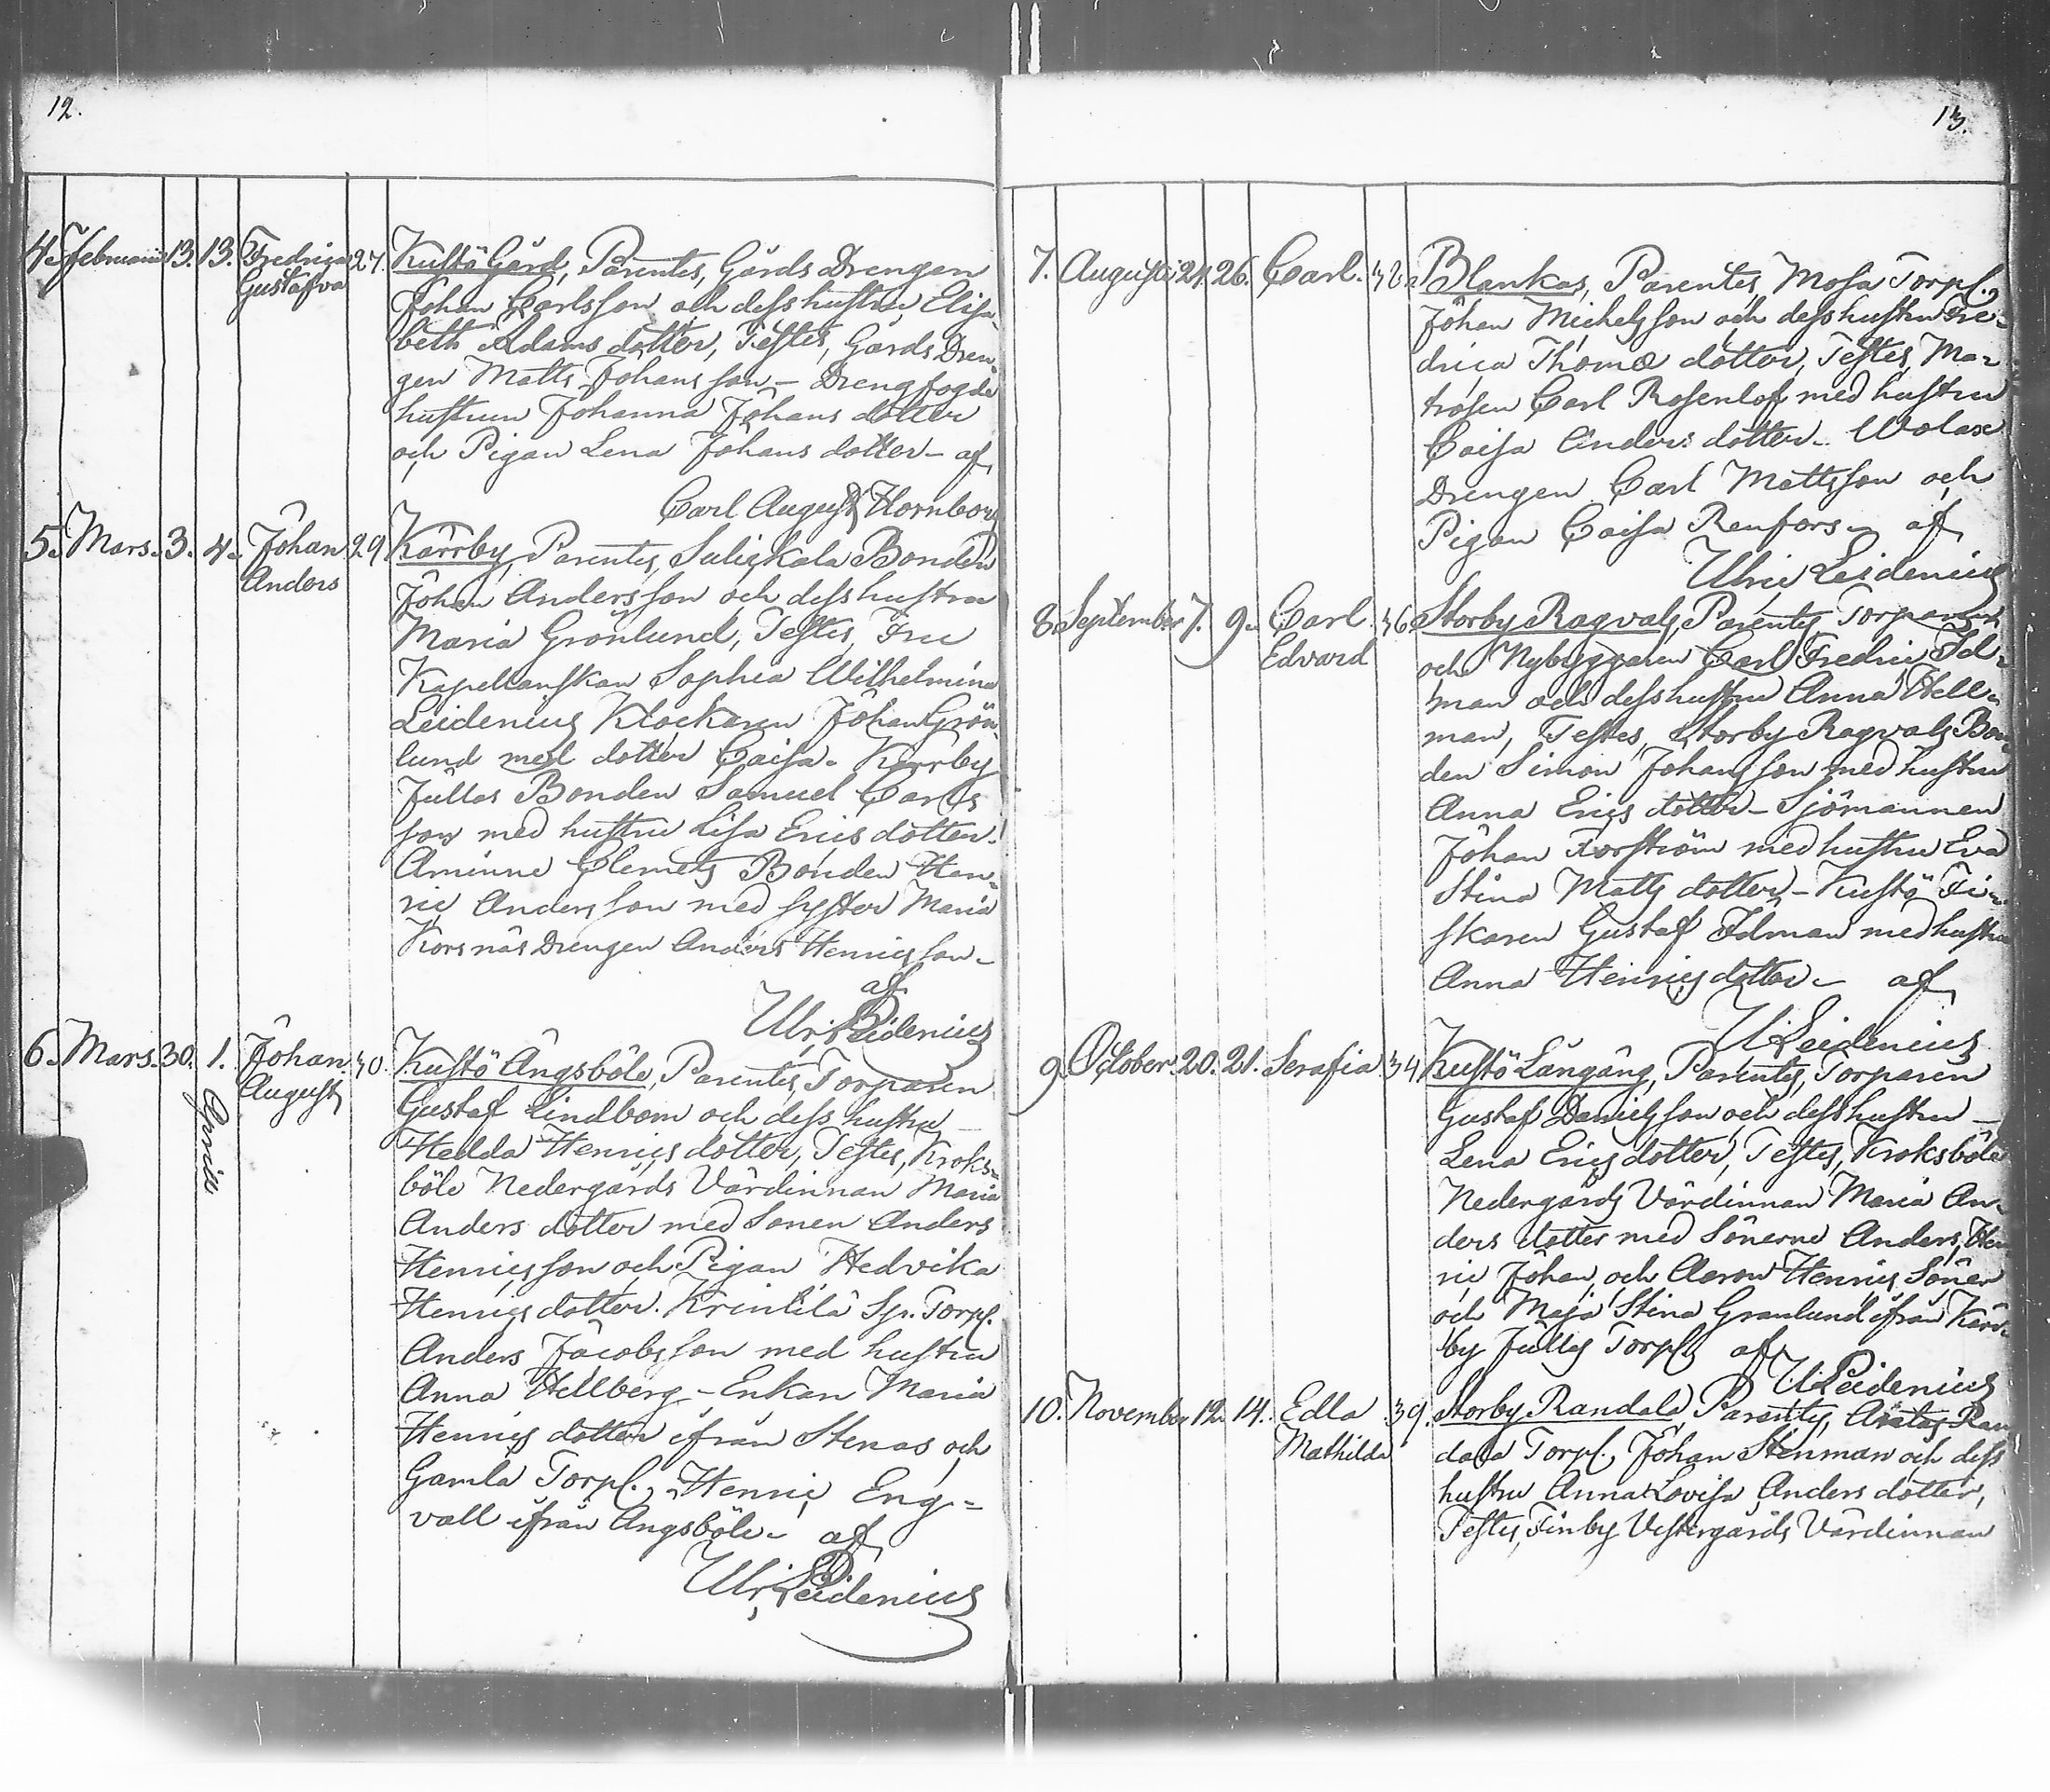 12.
4. Februarii 13. 13. Fredrica Gustafva 27. Kustö Gård, Parentes, Gårds Drengen
Johan Carlsson och dess hustru Elisa-
beth Adams dotter, Testes, Gårds Dren-
gen Matts Johans son – Drengfogde
hustrun Johanna Johans dotter
och Pigan Lena Johans dotter – af
Carl August Hornborg
5. Mars. 3. 4. Johan Anders 29 Kärrby, Parentes, Bonden
Johan Andersson och dess hustru
Maria Grönlund, Testes, Fru
Kapellanskan Sophia Wilhelmina
Leidenius Klockaren Johan Grön-
lund med dotter Caisa. Kärrby
Jullas Bonden Samuel Carls
son med hustru Lisa Erics dotter.
Aminne Clemets Bonden Hen-
ric Anders son med syster Maria
Korsnäs Drengen Anders Henrics son –
af
Ulric Leidenius
6. Mars. 30. 1. Aprill Johan August 30. Kustö Ängsböle, Parentes, Torparen
Gustaf Lindbom och dess hustru –
Hedda Henrics dotter, Testes, Kroks-
böle Nedergårds Värdinnan Maria
Anders dotter med Sonen Anders
Henrics son och Pigan Hedvika
Henrics dotter. Krinkilä Torpf.
Anders Jacobs son med hustru
Anna Hellberg – Enkan Maria
Henrics dotter ifrån Stenas och
Gamla Torpf., Henric Eng-
vall ifrån Ängsböle – af
Ulric Leidenius
13.
7. Augusti 24. 26. Carl. Blankas, Parentes, Mosa Torpf.,
Johan Michelsson och dess hustru Fre-
drica Thomæ dotter, Testes, Ma-
trosen Carl Rosenlöf med hustru
Caisa Anders dotter –
Drengen Carl Mattsson och
Pigan Caisa Renfors – af
Ulric Leidenius
8. September 7. 9. Carl Edvard 36. Storby Ragvals, Parentes Torparen
och Nybyggaren Carl Fredric Id-
man och dess hustru Anna Hell-
man, Testes, Storby Ragvals Bon-
den Simon Johans son med hustru
Anna Erics dotter – Sjömannen
Johan Forström med hustru Eva
Stina Matts dotter – Kustö Fi-
skaren Gustaf Idman med hustru
Anna Henrics dotter – af
U Leidenius
9. October. 20. 21. Serafia 34 Kustö Långäng, Parentes, Torparen
Gustaf Daniels son och dess hustru –
Lena Erics dotter, Testes, Kroksböle
Nedergårds Värdinnan Maria An-
ders dotter med Sönerne Anders, Hen
ric Johan, och Aaron Henrics Söner
och Maja Stina Granlund ifrån Kärr-
by Jullas Torpf. af
U Leidenius
10. November 12. 14. Edla Mathilda 39. Storby Randala, Parentes, Ran
dala Torpf. Johan Stenman och dess
hustru Anna Lovisa Anders dotter,
Testes, Finby Vestergårds Värdinnan